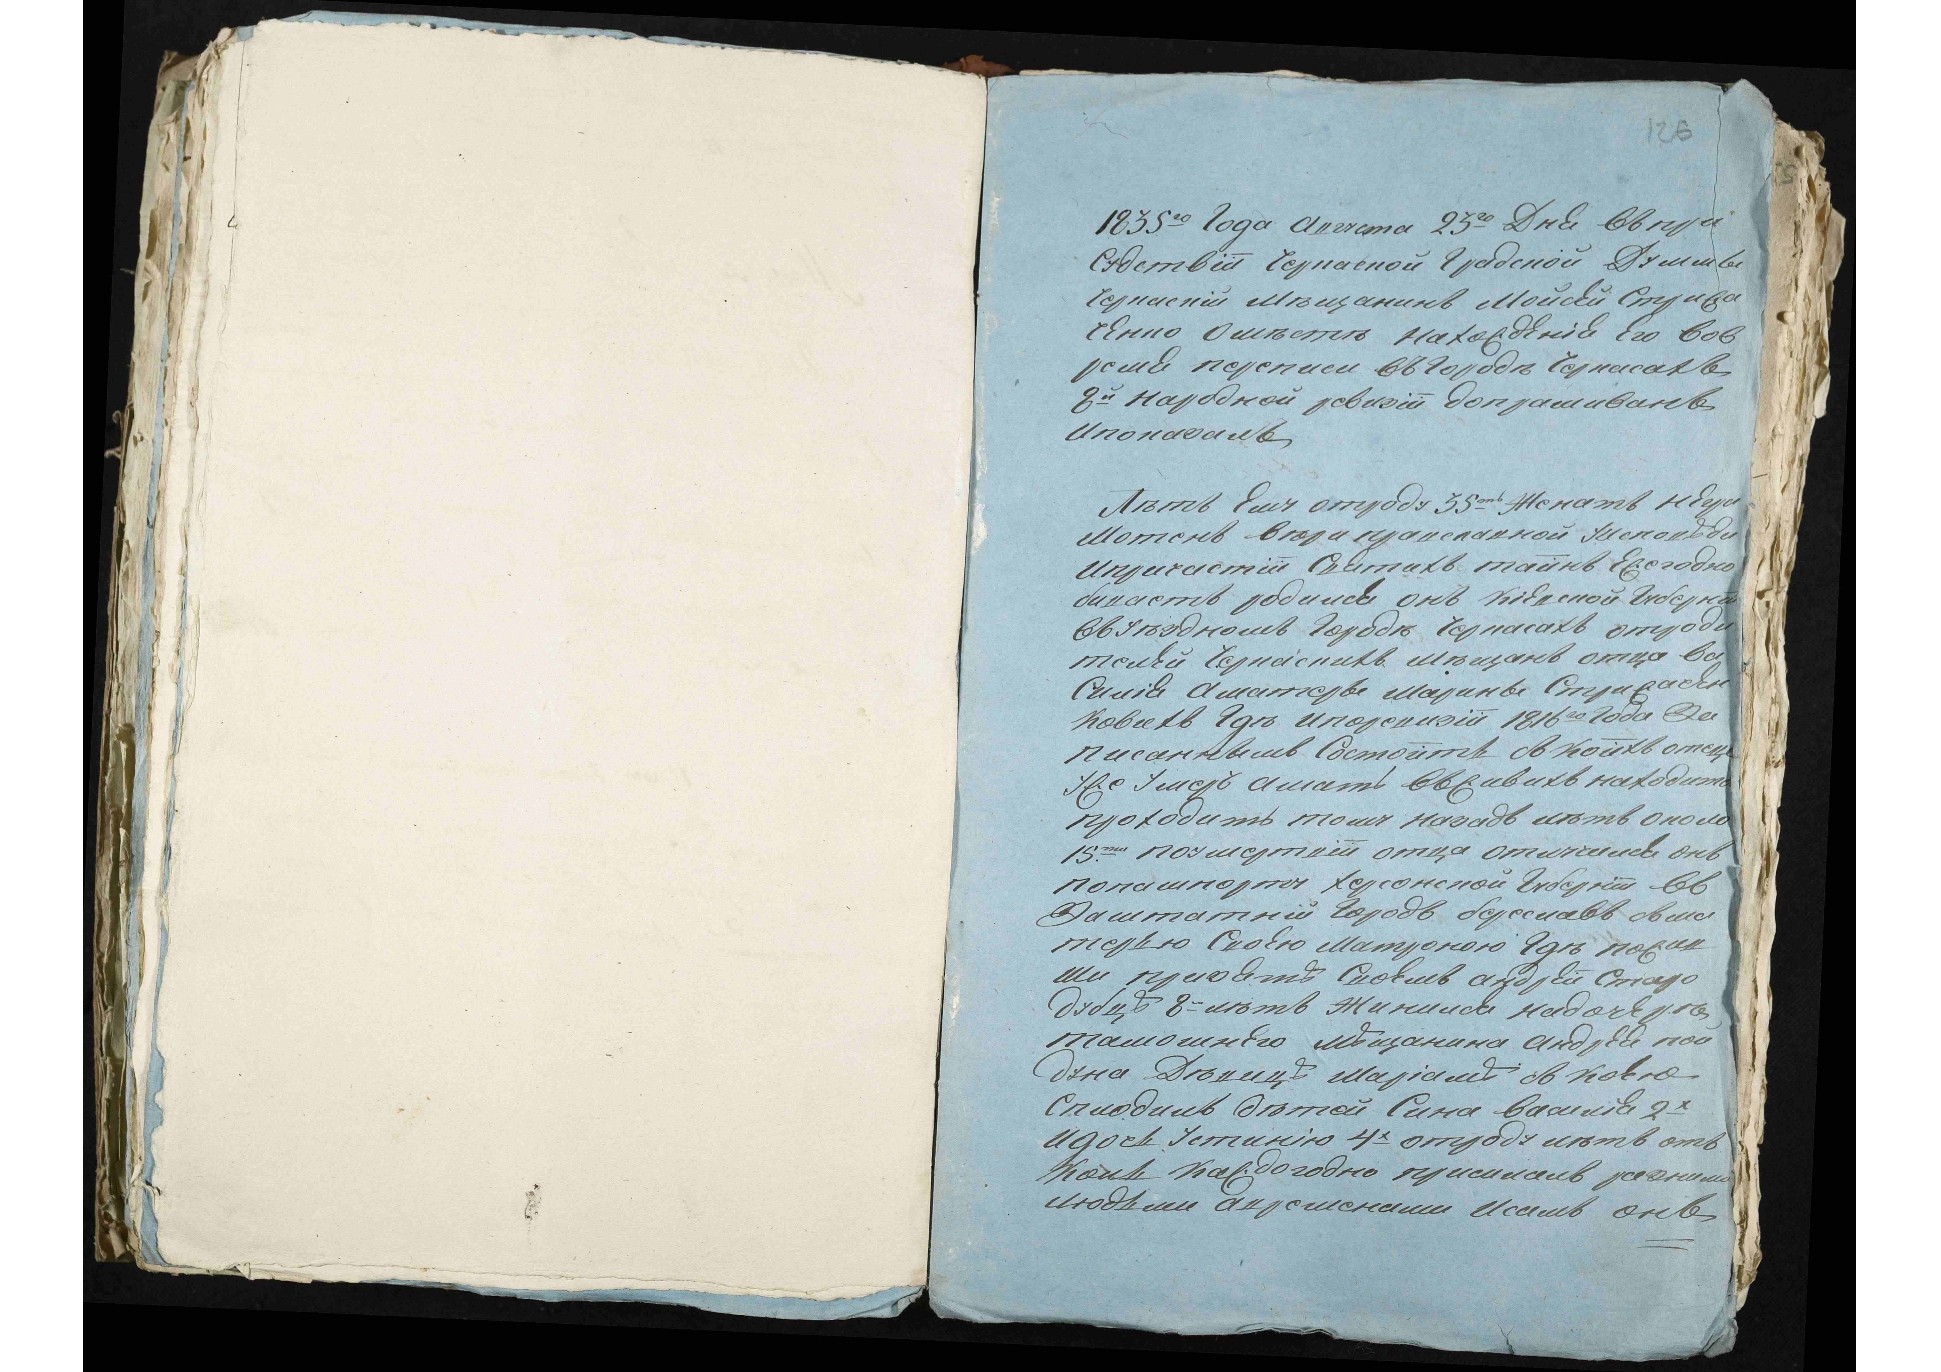 126
1835го Года Августа 23го Дня Въ при
Судствіи Черкаской Градской Думы
Черкаскій Мѣщанинъ Мойсей Стрижа
ченко о мѣстѣ нахожденія Его Вов
ремя переписи ВЪ Городѣ Черкасахъ
8й народной ревизіи допрашиванъ
Ипоказалъ
Лѣтъ Ему отроду 35ть Женатъ негра
мотенъ Вѣри православной уисповѣди
Ипричастіи Святихъ тайнъ Ежегодно
бываетъ родился онъ Кіевской Губерніи
Въ Уѣздномъ Городѣ Черкасахъ отроди
телей Черкаскихъ мѣщанъ отца Ва
силія Аматерѣ Марины Стрижачен
ковихъ Гдѣ ипоревизіи 1816го Года За
писаннымъ Состоитъ съ Коихъ отецъ
уже умеръ Амать ВЪживихъ находить
проходить тому назадъ лѣтъ около
15ти поумертвіи отца отлучился онъ
попашпорту Херсонской Губерніи Въ
Заштатній Городъ береславъ съма
терью Своею Матроною Гдѣ пожив
ши Андрей Старо
дубцѣ 8 лѣтъ Жинился надочерѣ
тамошнего Мѣщанина Андрея пой
дуна Дѣвицѣ Маріамѣ съ Коею
Сплодилъ дѣтей Сина Василія 2х
Идочь Устинію 4х отроду лѣтъ отъ
Коль Каждогодно присилалъ разними
людьми Авременами Исамъ онъ